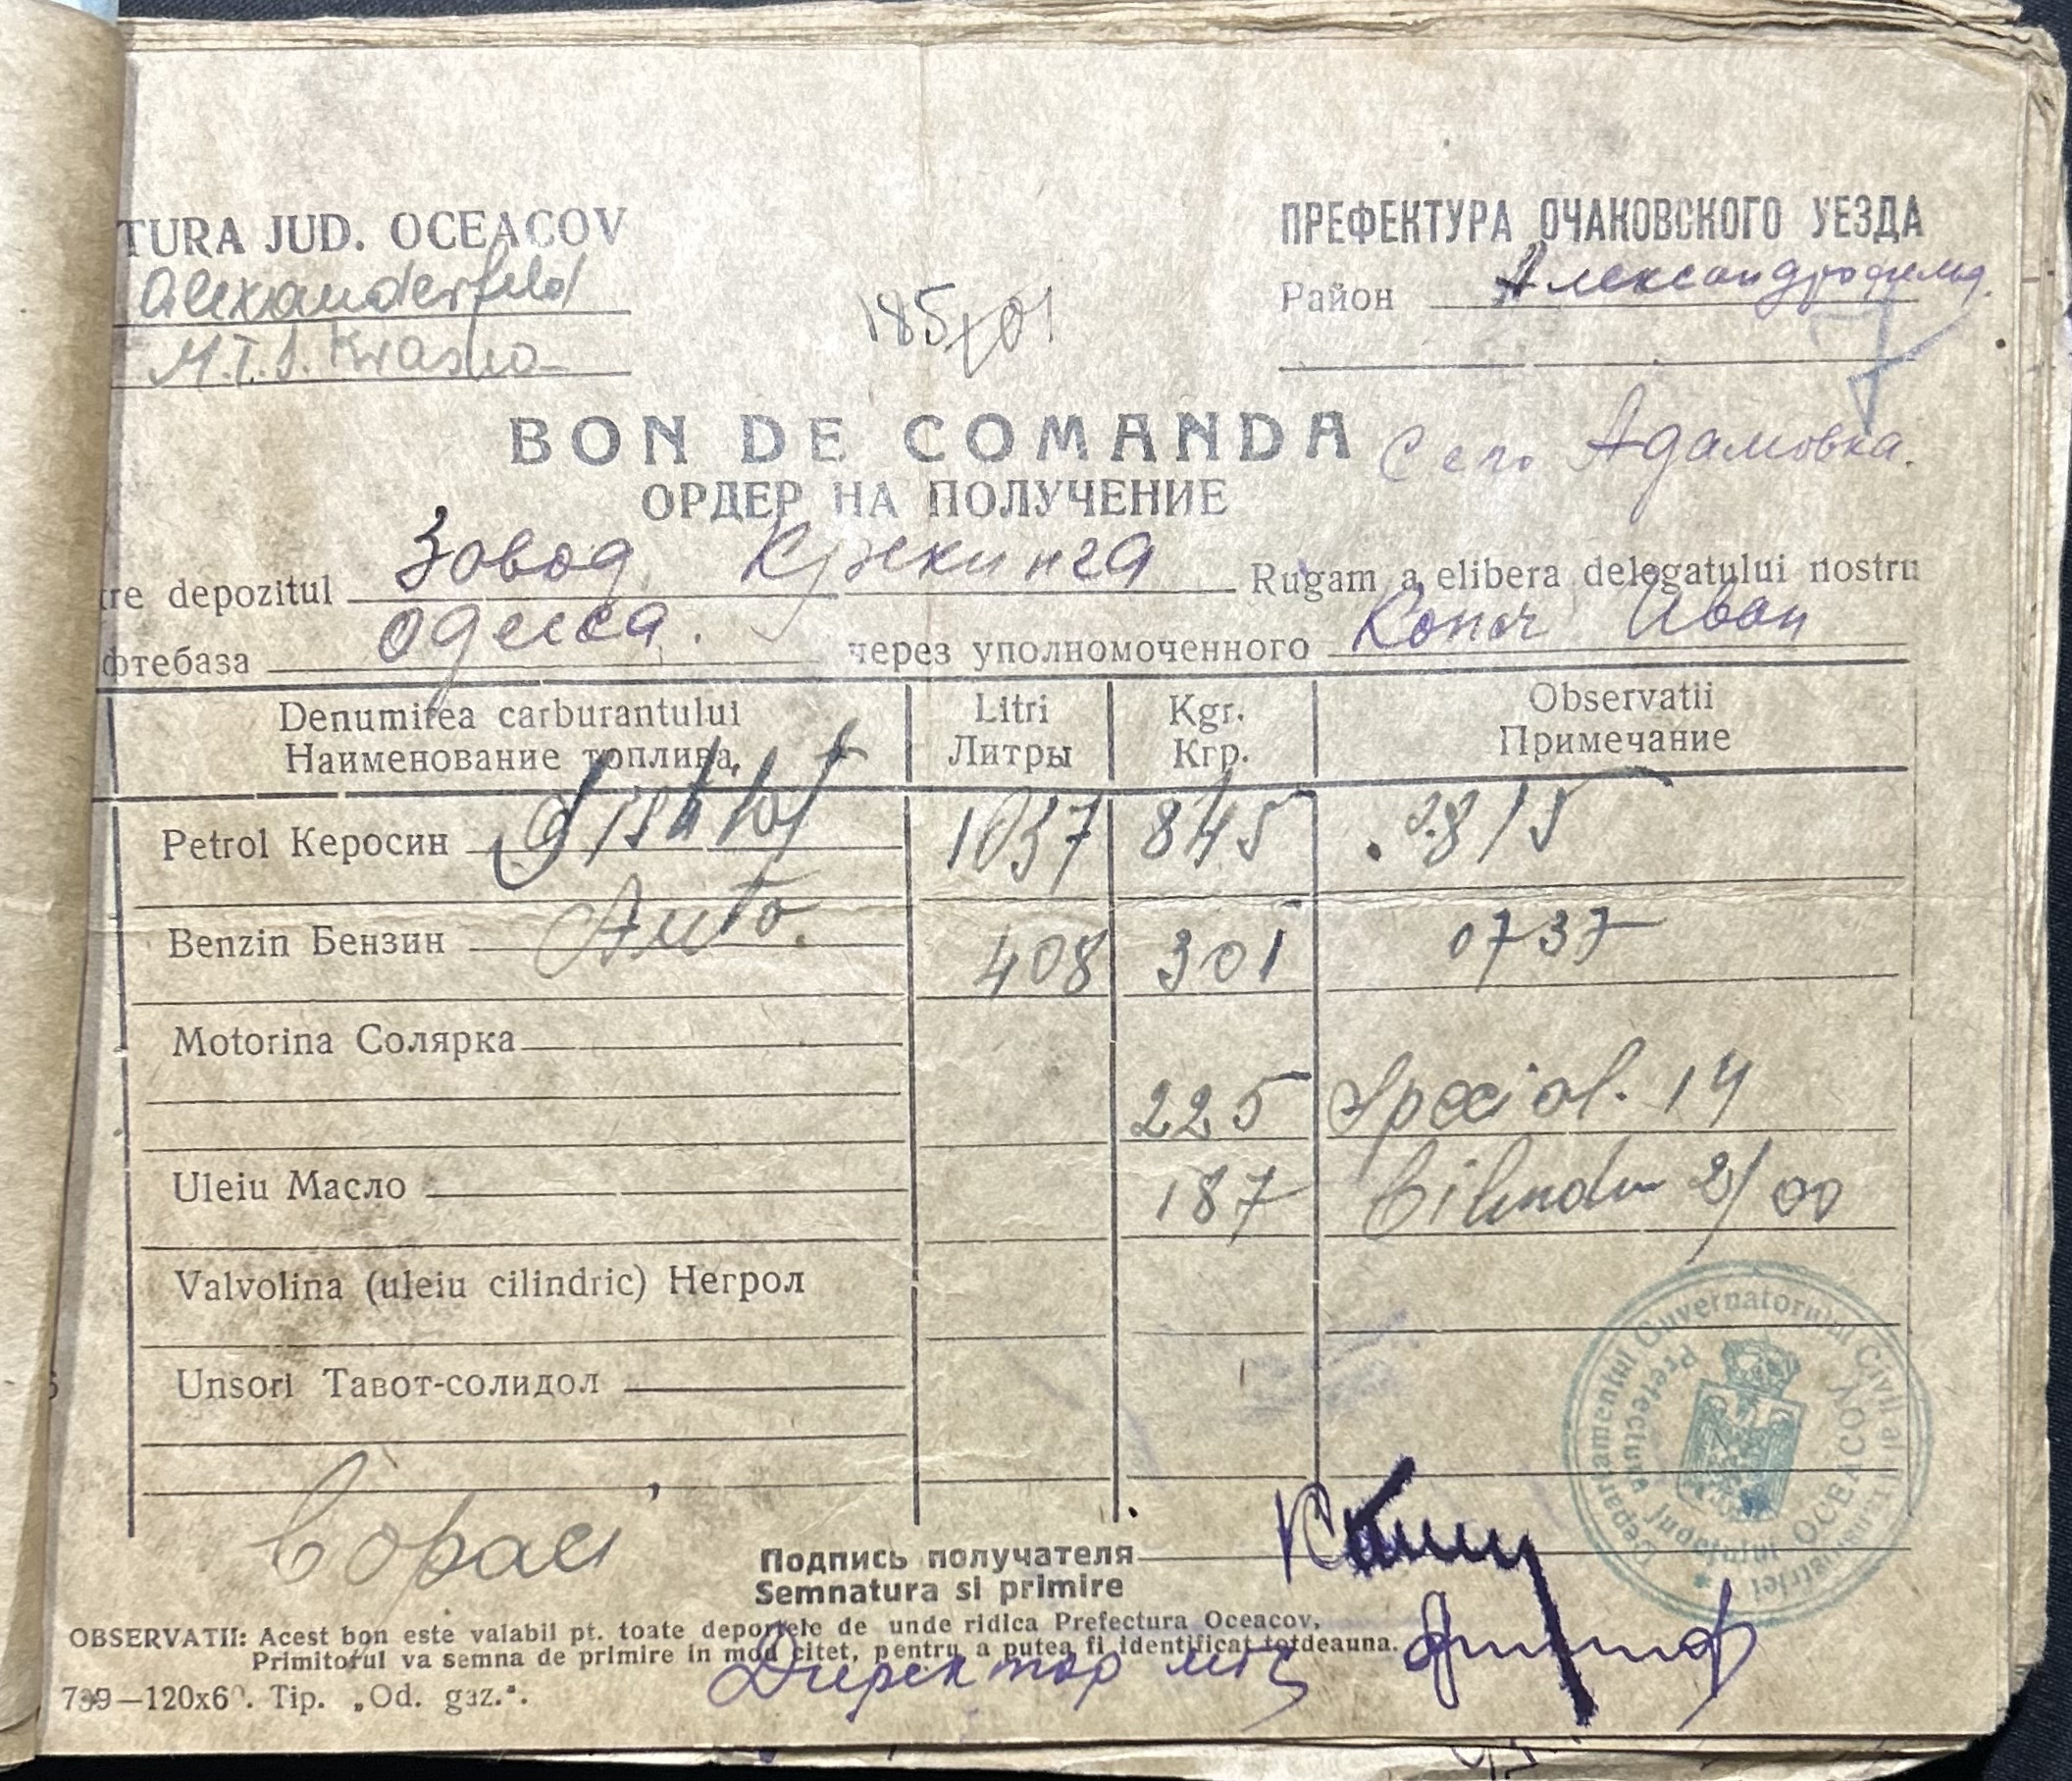 TURA JUD. OCEACOV
ПРЕФЕКТУРА ОЧАКОВСКОГО УЕЗДА
Alexanderfeld
Район Александрофельд.
M.T.S. Krasna
185/01
BON DE COMANDA
Село Адамовка.
ОРДЕР НА ПОЛУЧЕНИЕ
re depozitul Зовод Крекинга Rugam a elibera delegatului nostru
фтебаза Одесса. через уполномоченного Копач Иван
Denumirea carburantului Litri Kgr. Observatii
Наименование топлива Литры Кгр. Примечание
Petrol Керосин 1037 845 815
Benzin Бензин Auto. 408 301 0737
Motorina Солярка
225 Special. 14
Uleiu Масло 187 Cilindru 2/00
Valvolina (uleiu cilindric) Негрол
Unsori Тавот-солидол
Departamentul Guvernatorului Civil al Transnistriei
Prefectura Județului OCEACOV
Подпись получателя
Semnatura si primire
OBSERVATII: Acest bon este valabil pt. toate deporțele de unde ridica Prefectura Oceacov,
Primitorul va semna de primire in mod citet, pentru a putea fi identificat totdeauna.
Директор мтс
739—120x60. Tip. „Od. gaz.".